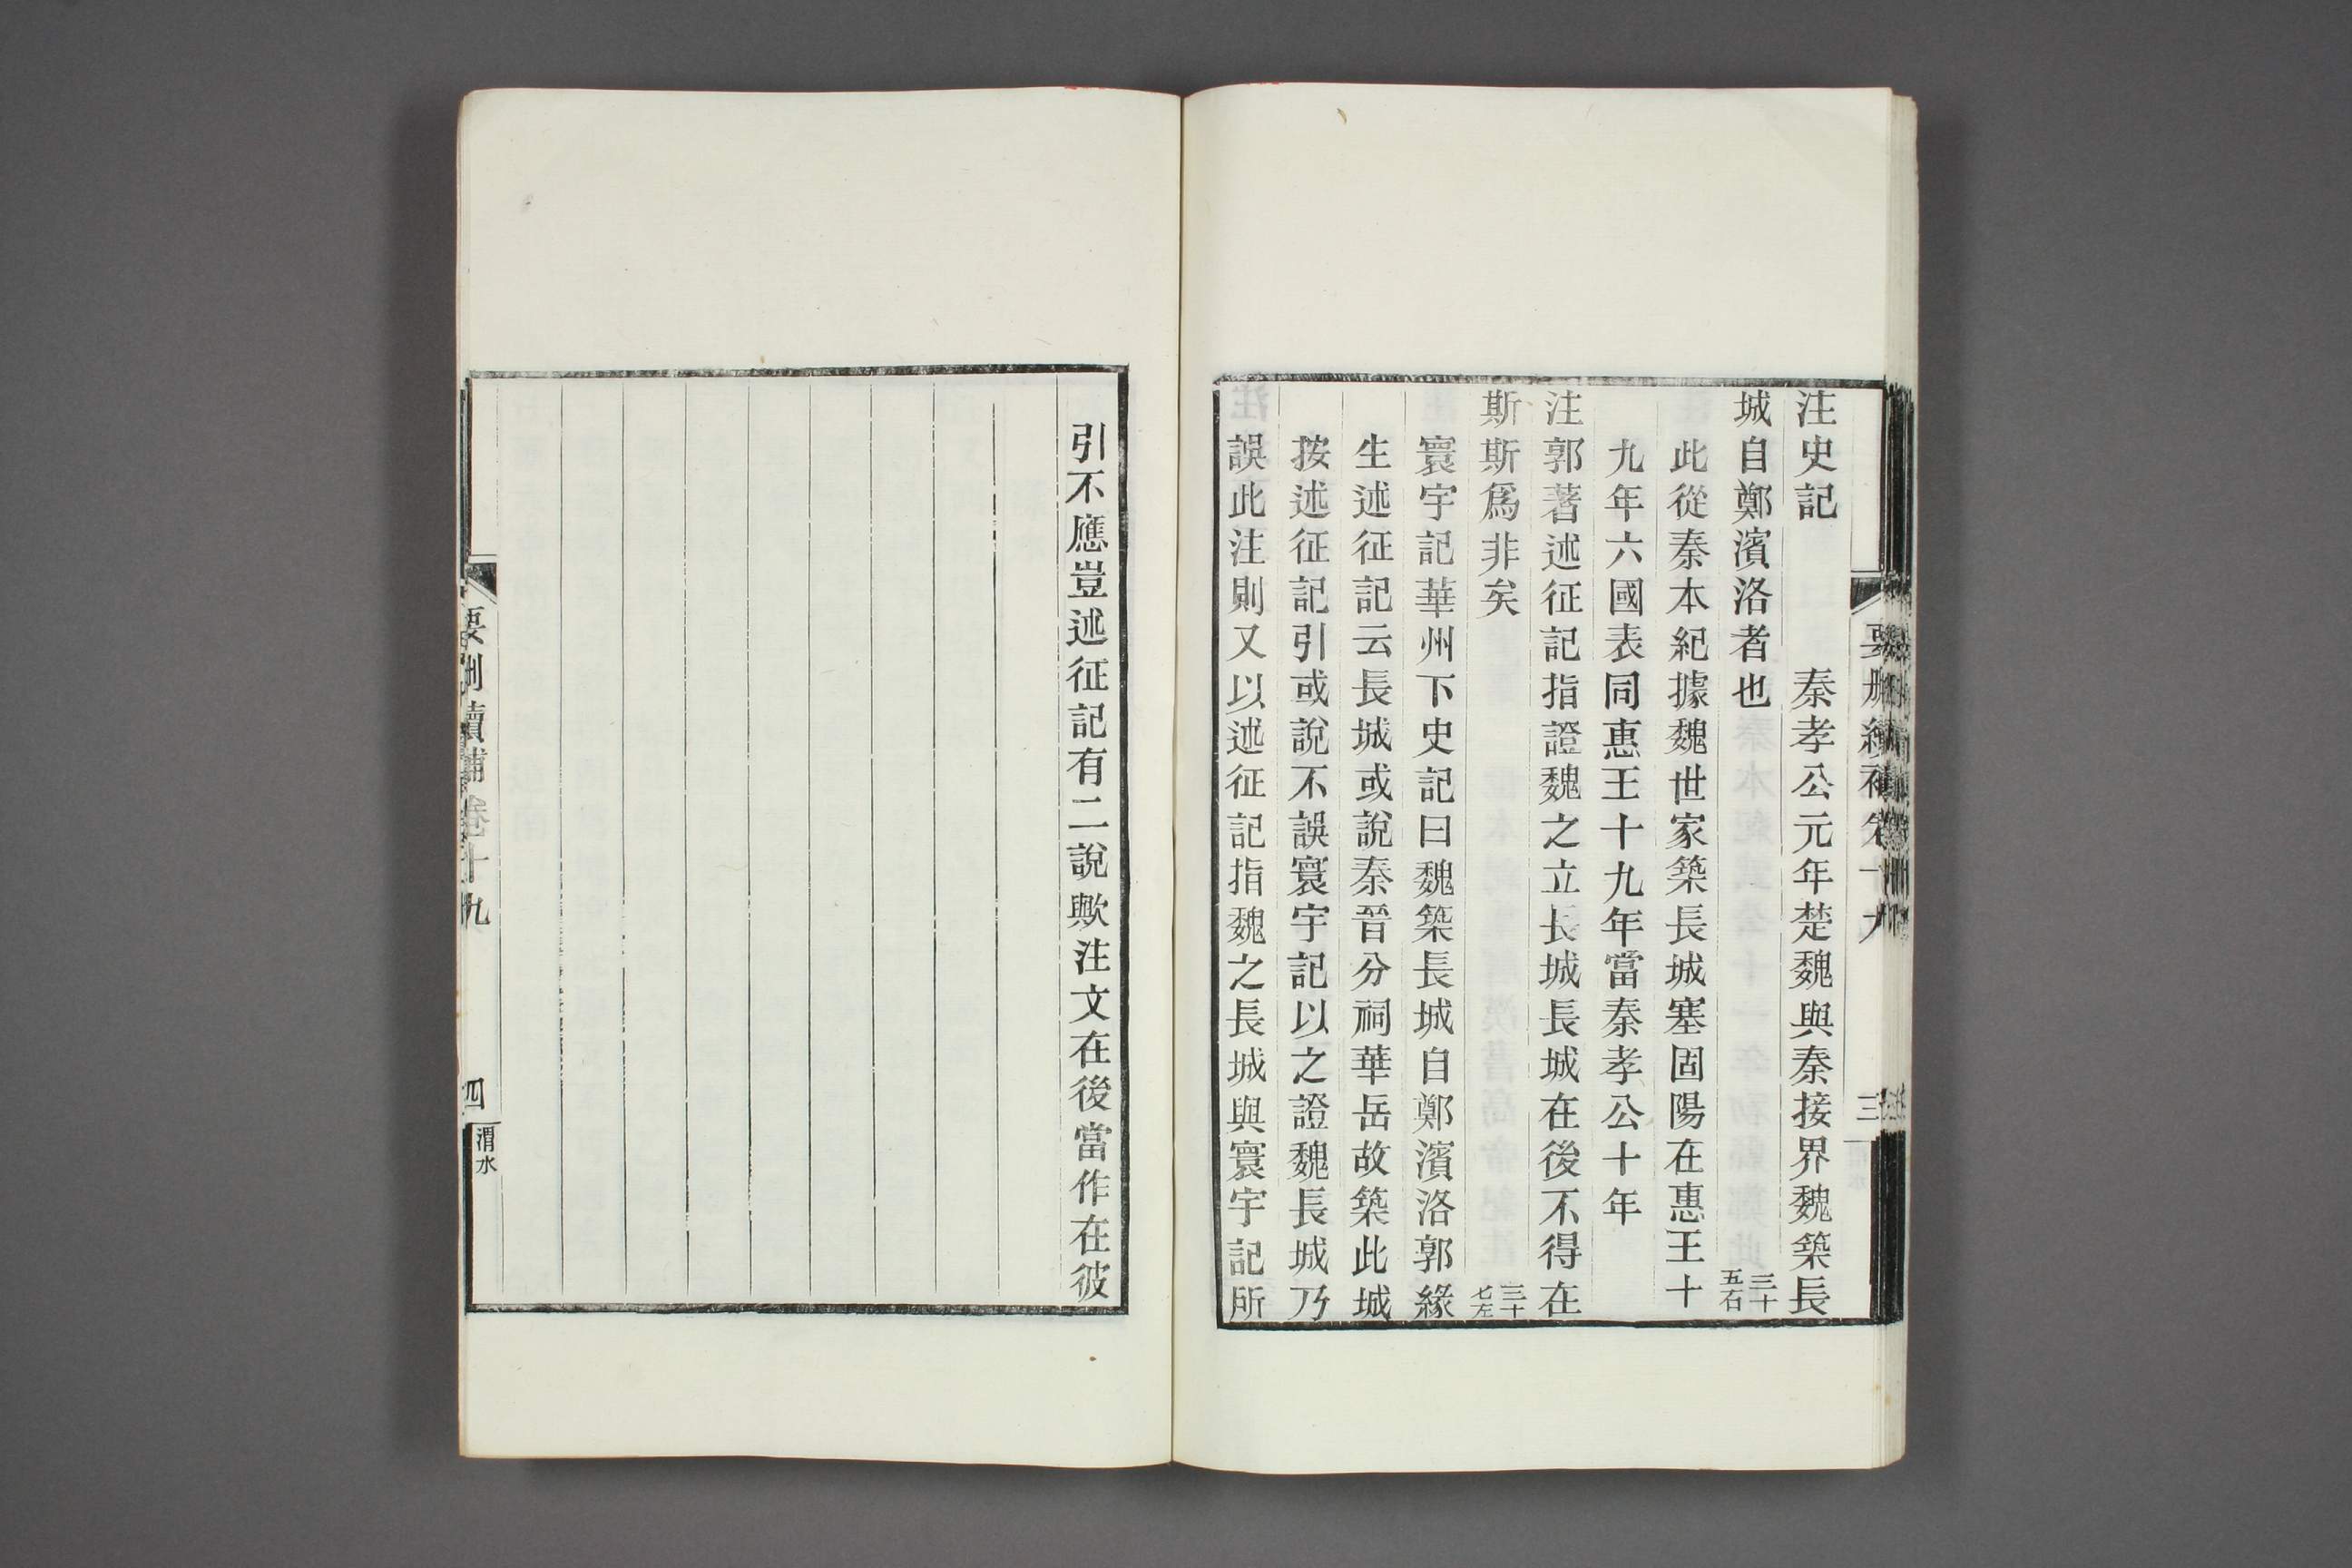 注史記　　　秦孝公元年楚魏與秦接界魏築長
城自鄭濱洛者也　三十五右
此從秦本紀據魏世家築長城塞固陽在惠王十
九年六國表同惠王十九年當秦孝公十年
注郭著述征記指證魏之立長城長城在後不得在
斯斯爲非矣　三十七左
寰宇記華州下史記曰魏築長城自鄭濱洛郭緣
生述征記云長城或說秦晉分祠華岳故築此城
按述征記引或說不誤寰宇記以之證魏長城乃
誤此注則又以述征記指魏之長城與寰宇記所
引不應豈述征記有二說歟注文在後當作在彼
要刪續補卷十九　四　渭水